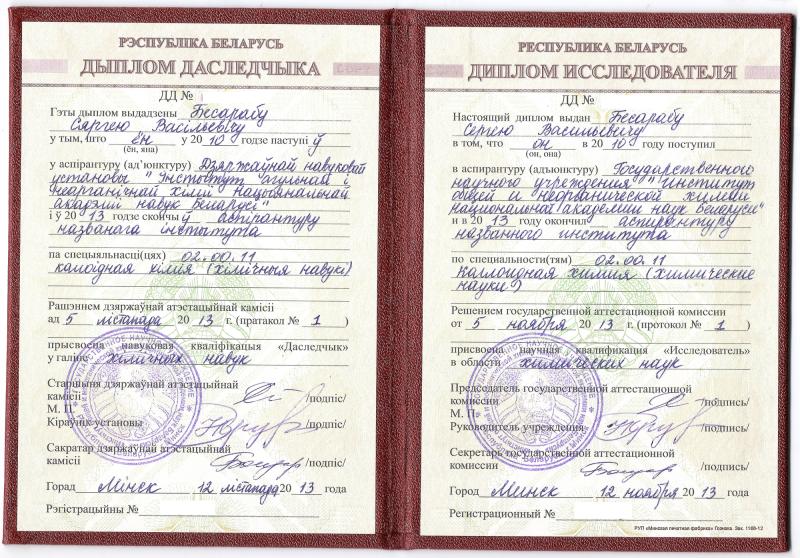 РЭСПУБЛІКА БЕЛАРУСЬ
ДЫПЛОМ ДАСЛЕДЧЫКА
ДД №
Гэты дыплом выдадзены Бесарабу
Сяргею Васільевічу
у тым, што ён у 2010 годзе паступіў
(ён, яна)
у аспірантуру (ад'юнктуру) Дзяржаўнай навуковай
установы "Інстытут агульнай і
неарганічнай хіміі Нацыянальнай
акадэміі навук Беларусі"
і ў 2013 годзе скончыў аспірантуру
названага інстытута
па спецыяльнасці(цях) 02.00.11
калоідная хімія (хімічныя навукі)
Рашэннем дзяржаўнай атэстацыйнай камісіі
ад 5 лістапада 2013 г. (пратакол № 1)
прысвоена навуковая кваліфікацыя «Даследчык»
у галіне хімічных навук
Старшыня дзяржаўнай атэстацыйнай
камісіі /подпіс/
М. П.
Кіраўнік установы /подпіс/
Сакратар дзяржаўнай атэстацыйнай
камісіі /подпіс/
Горад Мінск 12 лістапада 2013 года
Рэгістрацыйны №
РЕСПУБЛИКА БЕЛАРУСЬ
ДИПЛОМ ИССЛЕДОВАТЕЛЯ
ДД №
Настоящий диплом выдан Бесарабу
Сергею Васильевичу
в том, что он в 2010 году поступил
(он, она)
в аспирантуру (адъюнктуру) Государственного
научного учреждения "Институт
общей и неорганической химии
Национальной академии наук Беларуси"
и в 2013 году окончил аспирантуру
названного института
по специальности(тям) 02.00.11
Коллоидная химия (химические
науки)
Решением государственной аттестационной комиссии
от 5 ноября 2013 г. (протокол № 1)
присвоена научная квалификация «Исследователь»
в области химических наук
Председатель государственной аттестационной
комиссии /подпись/
М. П.
Руководитель учреждения /подпись/
Секретарь государственной аттестационной
комиссии /подпись/
Город Минск 12 ноября 2013 года
Регистрационный №
РУП «Минская печатная фабрика» Гознака. Зак. 1168-12